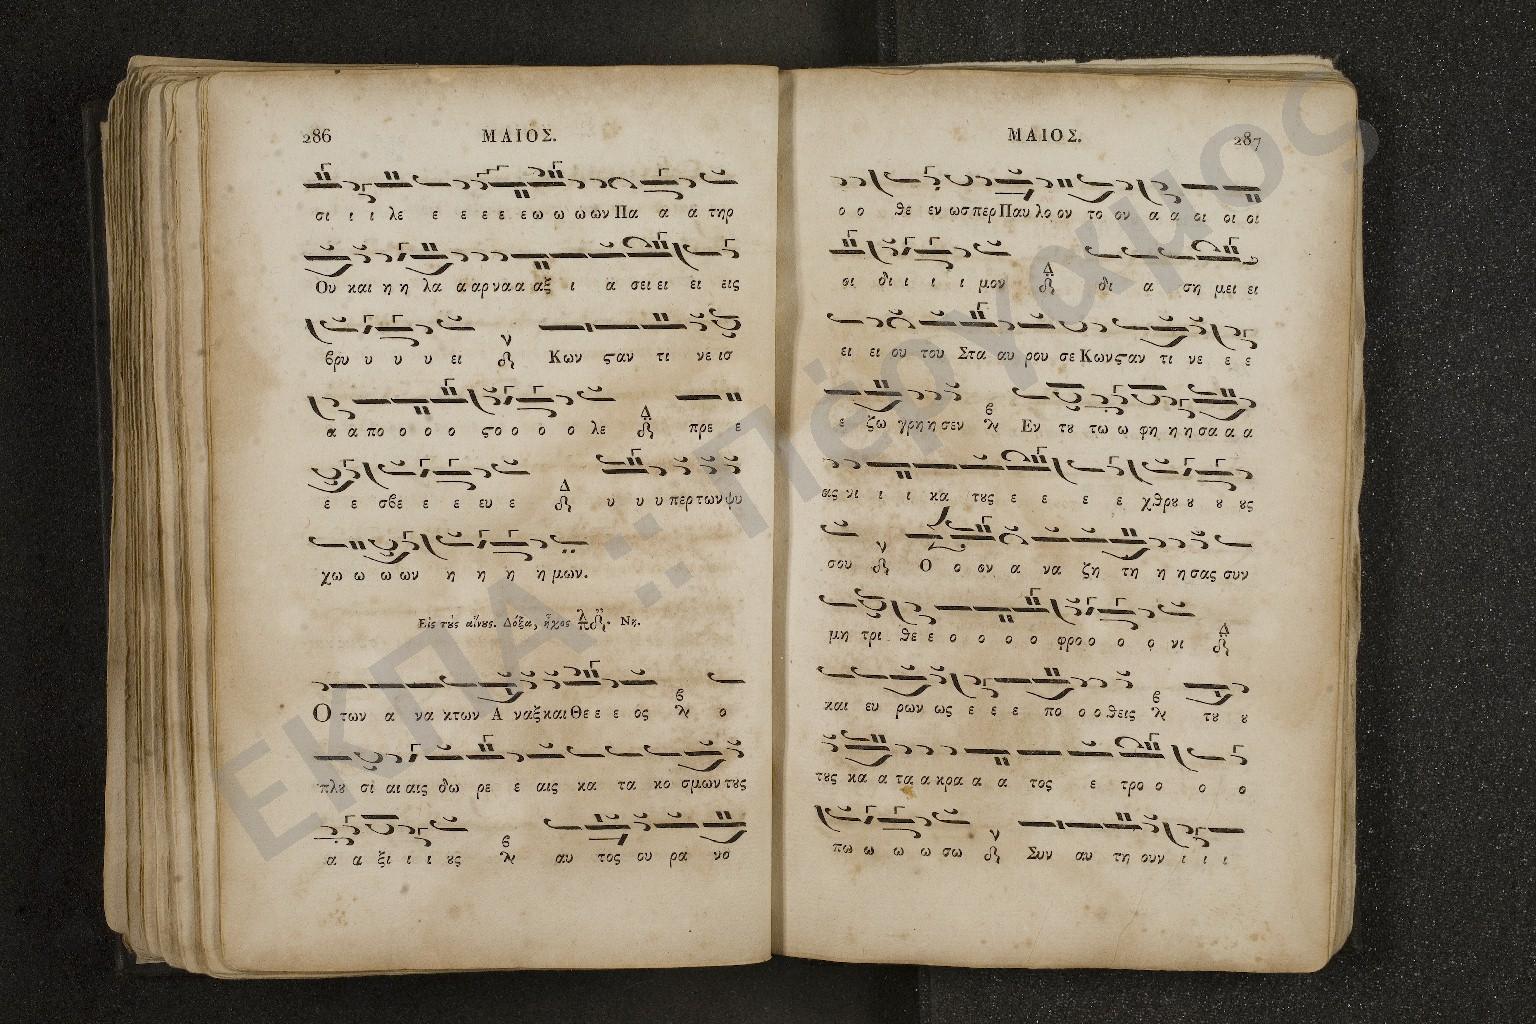 286
ΜΑΙΟΣ.
σι ι ι λε ε ε ε ε εω ω ω ων Πα α α τηρ
Ου και η η λα α αρ να α αξ ι α σει ει ει εις
βρυ υ υ υ ει Κων ϛαν τι νε ισ
α α πο ο ο ο ϛο ο ο ο λε πρε ε
ε ε σβε ε ε ευ ε υ υ υ περ των ψυ
χω ω ω ων η η η η μων.
Εἰς τοὺς αἴνους. Δόξα, ἦχος Νη.
Ο των α να κτων Α ναξ και Θε ε ε ος ο
πλȣ σι αι αις δω ρε ε αις κα τα κο σμων τȣς
α α ξι ι ι ȣς αυ τος ου ρα νο
287
ΜΑΙΟΣ.
ο ο θε εν ωσ περ Παυ λο ον το ον α α οι οι οι
οι δι ι ι ι μον δι α ση μει ει
ει ει ου του Στα αυ ρου σε Κων ϛαν τι νε ε ε
ε ζω γρη η σεν Εν τȣ τω ω φη η η σα α α
ας νι ι ι κα τȣς ε ε ε ε χθρȣ ȣ ȣ ȣς
σου Ο ο ον α να ζη τη η η σας συν
μη τρι θε ε ο ο ο ο φρο ο ο ο νι
και ευ ρων ως ε ε ε πο ο ο θεις τȣ ȣ
τȣς κα α τα α κρα α α τος ε τρο ο ο ο
πω ω ω ω σω Συν αυ τη ουν ι ι ι
ΕΚΠΑ :: Πέργαμος